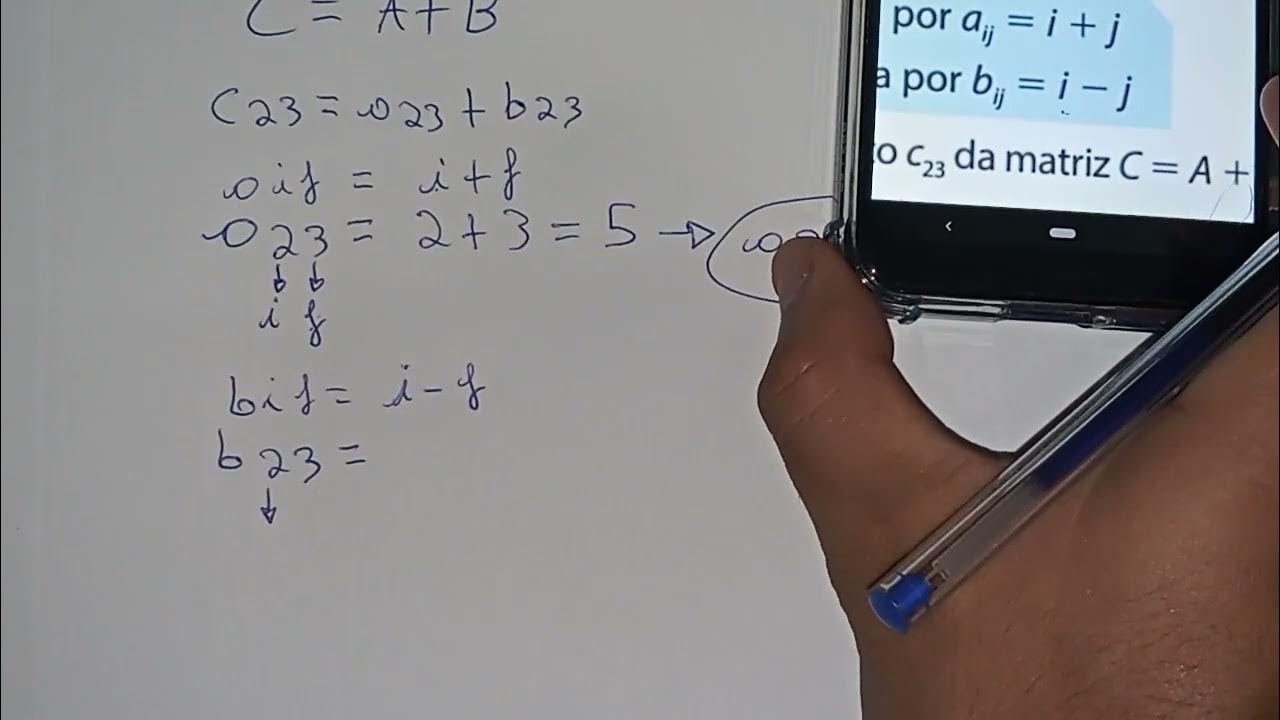 C = A + B
C23 = a23 + b23
aij = i + j
a23 = 2 + 3 = 5 →
↓ ↓
i j
bij = i - j
b23 =
↓
por aij = i + j
a por bij = i − j
o c23 da matriz C = A +